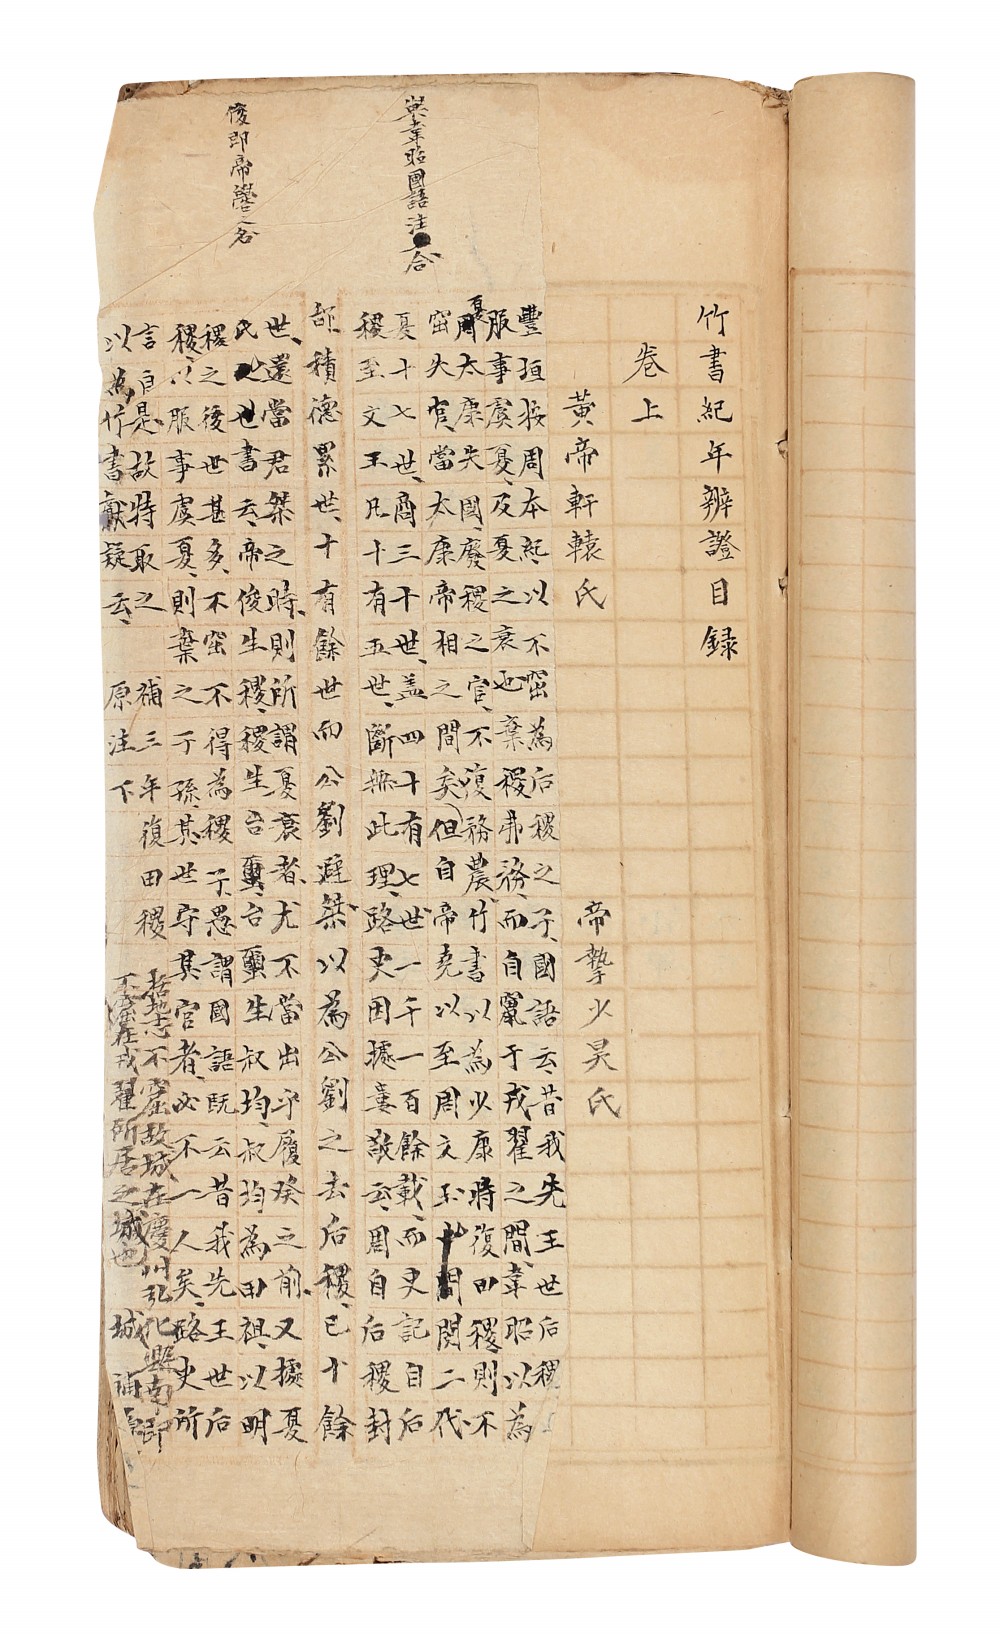 竹書紀年辨證目録
卷上
黃帝軒轅氏 帝摯少昊氏
與韋昭國語注合
俊即帝嚳之名
豐垣按周本紀以不窋為后稷之子國語云昔我先王世后稷
服事虞夏及夏之衰也棄稷弗務而自竄于戎翟之間韋昭以為
夏太康失國廢稷之官不復務農竹書以為少康時復田稷則不
窋失官當太康帝相之間矣但自帝堯以至周文王中間閱二代
夏十七世商三十世蓋四十有七世一千一百餘載而史記自后
稷至文王凡十有五世斷無此理路史因據婁敬云周自后稷封
邰積德累世十有餘世而公劉避桀以為公劉之去后稷已十餘
世還當君桀之時則所謂夏衰者尤不當出于履癸之前又據夏
氏世書云帝俊生稷稷生台璽台璽生叔均叔均為田祖以明
稷之後世甚多不窋不得為稷子愚謂國語既云昔我先王世后
稷以服事虞夏則棄之子孫其世守其官者必不一人矣路史所
言自是故特取之 補三年復田稷
以為竹書獻疑云 原注下
括地志不窋故城在慶州弘化縣南即
不窋在戎翟所居之城也 城 補